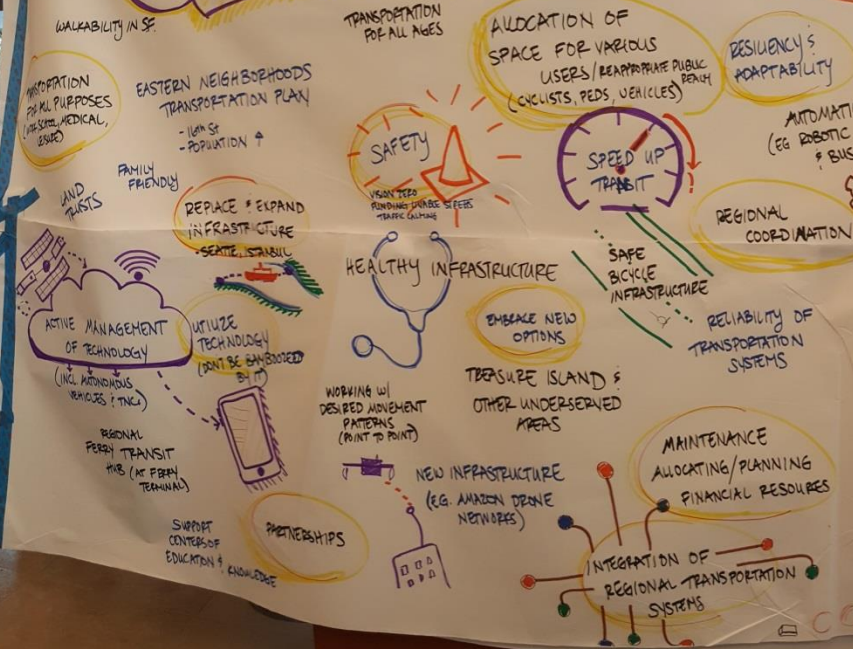 WALKABILITY IN SF.
TRANSPORTATION
FOR ALL AGES
ALLOCATION OF
SPACE FOR VARIOUS
USERS/REAPPROPRIATE PUBLIC
REALM
(CYCLISTS, PEDS, VEHICLES)
RESILIENCY &
ADAPTABILITY
FOR ALL PURPOSES
SCHOOL, MEDICAL,
LEISURE)
EASTERN NEIGHBORHOODS
TRANSPORTATION PLAN
- 16th St
- POPULATION ↑
SAFETY
VISION ZERO
FUNDING LIVABLE STREETS
TRAFFIC CALMING
SPEED UP
TRANSIT
(EG ROBOTIC
LAND
TRUSTS
FAMILY
FRIENDLY
REPLACE & EXPAND
INFRASTRUCTURE
REGIONAL
COORDINATION
HEALTHY INFRASTRUCTURE
SAFE
BICYCLE
INFRASTRUCTURE
ACTIVE MANAGEMENT
OF TECHNOLOGY
(INCL AUTONOMOUS
VEHICLES & TNCs)
UTILIZE
TECHNOLOGY
(DON'T BE BAMBOOZLED
BY IT)
EMBRACE NEW
OPTIONS
RELIABILITY OF
TRANSPORTATION
SYSTEMS
TREASURE ISLAND &
OTHER UNDERSERVED
AREAS
WORKING W/
DESIRED MOVEMENT
PATTERNS
(POINT TO POINT)
REGIONAL
FERRY TRANSIT
HUB (AT FERRY
TERMINAL)
NEW INFRASTRUCTURE
(EG. AMAZON DRONE
NETWORKS)
MAINTENANCE
ALLOCATING/PLANNING
FINANCIAL RESOURCES
SUPPORT
CENTERS OF
EDUCATION & KNOWLEDGE
PARTNERSHIPS
INTEGRATION OF
REGIONAL TRANSPORTATION
SYSTEMS